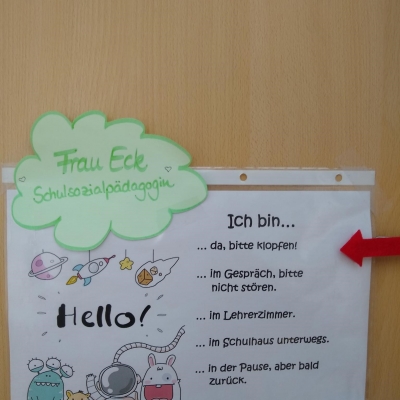 Frau Eck
Schulsozialpädagogin
Ich bin...
... da, bitte klopfen!
... im Gespräch, bitte
nicht stören.
Hello!
... im Lehrerzimmer.
... im Schulhaus unterwegs.
... in der Pause, aber bald
zurück.